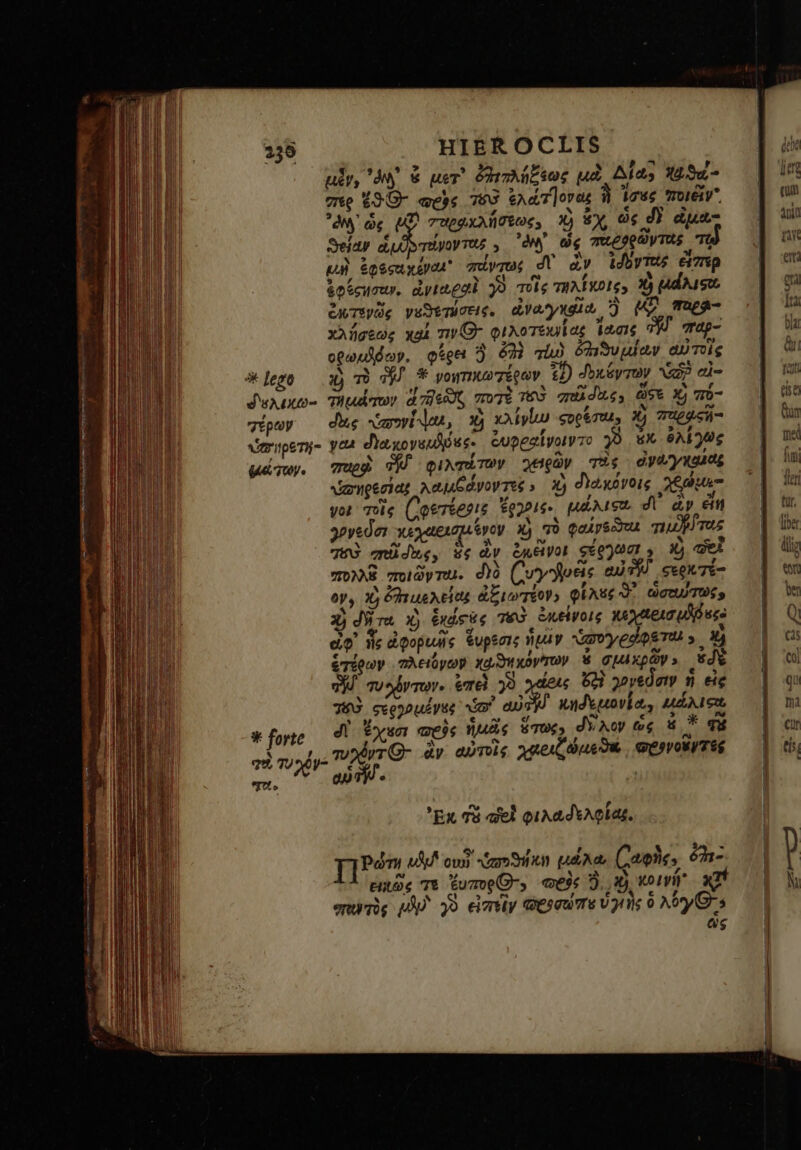 236 HIEROCLIS
μὲν, ἀλλ' οὐ μετ' ἐπιπλήξεως μὰ Δία, καθά-
περ ἔθος πρὸς τοὺς ἐλάττονας ἢ ἴσους ποιεῖν·
ἀλλ' ὡς μετὰ παρακλήσεως, καὶ οὐχ ὡς δι' ἀμα-
θείαν ἁμαρτάνοντας, ἀλλ' ὡς παρορῶντας τῷ
μὴ ἐφεστακέναι· πάντως δ' ἂν ἰδόντας εἴπερ
ἐφέστησαν. ἀνιαραὶ γὰρ τοῖς τηλίκοις, καὶ μάλιστα
ἐκτενῶς νουθετήσεις. ἀναγκαία δὲ μετὰ παρα-
κλήσεως καί τινος φιλοτεχνίας ἴασις τῶν παρ-
ορωμένων. φέρει δὲ ἐπὶ τὴν ἐπιθυμίαν αὐτοῖς
* lego καὶ τὸ τῶν * γονικωτέρων εἶναι δοκούντων ὑπὸ αἰ-
δουλικω- τημάτων ἅπτεσθαί ποτὲ τοὺς παῖδας, ὥστε καὶ πό-
τέρων δας ὑπονίψαι, καὶ κλίνην στορέσαι, καὶ παραστῆ-
ὑπηρετη- ναι διακονουμένους. εὐφραίνοιντο γὰρ οὐκ ὀλίγως
μάτων. παρὰ τῶν φιλτάτων χειρῶν τὰς ἀναγκαίας
ὑπηρεσίας λαμβάνοντες, καὶ διακόνοις χρώμε-
νοι τοῖς σφετέροις ἔργοις. μάλιστα δ' ἂν εἴη
γονεῦσι κεχαρισμένον καὶ τὸ φαίνεσθαι τιμῶντας
τοὺς παῖδας, οὓς ἂν ἐκεῖνοι στέργωσι, καὶ περὶ
πολλοῦ ποιῶνται. διὸ συγγενεῖς αὐτῶν στερκτέ-
ον, καὶ ἐπιμελείας ἀξιωτέον, φίλους θ' ὡσαύτως,
καὶ δῆτα καὶ ἑκάστους τοὺς ἐκείνοις κεχαρισμένους.
ἀφ' ἧς ἀφορμῆς εὕρεσις ἡμῖν ὑπογράφεται, καὶ
ἑτέρων πλειόνων καθηκόντων οὐ σμικρῶν, οὐδὲ
τῶν τυχόντων. ἐπεὶ γὰρ χάρις ἐστὶ γονεῦσιν ἡ εἰς
τοὺς στεργομένους ὑπ' αὐτῶν κηδεμονία, μάλιστα
* forte δ' ἔχουσι πρὸς ἡμᾶς οὕτως, δῆλον ὡς οὐ * τοῦ
τὰ τυχόν- τυχόντος ἂν αὐτοῖς χαριζώμεθα προνοοῦντες
τα. αὐτῶν.
Ἐκ τοῦ περὶ φιλαδελφίας.
Πρώτη μὲν οὖν ὑποθήκη μάλα σαφής, ἐπι-
εικῶς τε εὔπορος, πρὸς δὲ καὶ κοινή· κατὰ
παντὸς μὲν γὰρ εἰπεῖν προσώπου ὑγιὴς ὁ λόγος,
ὡς